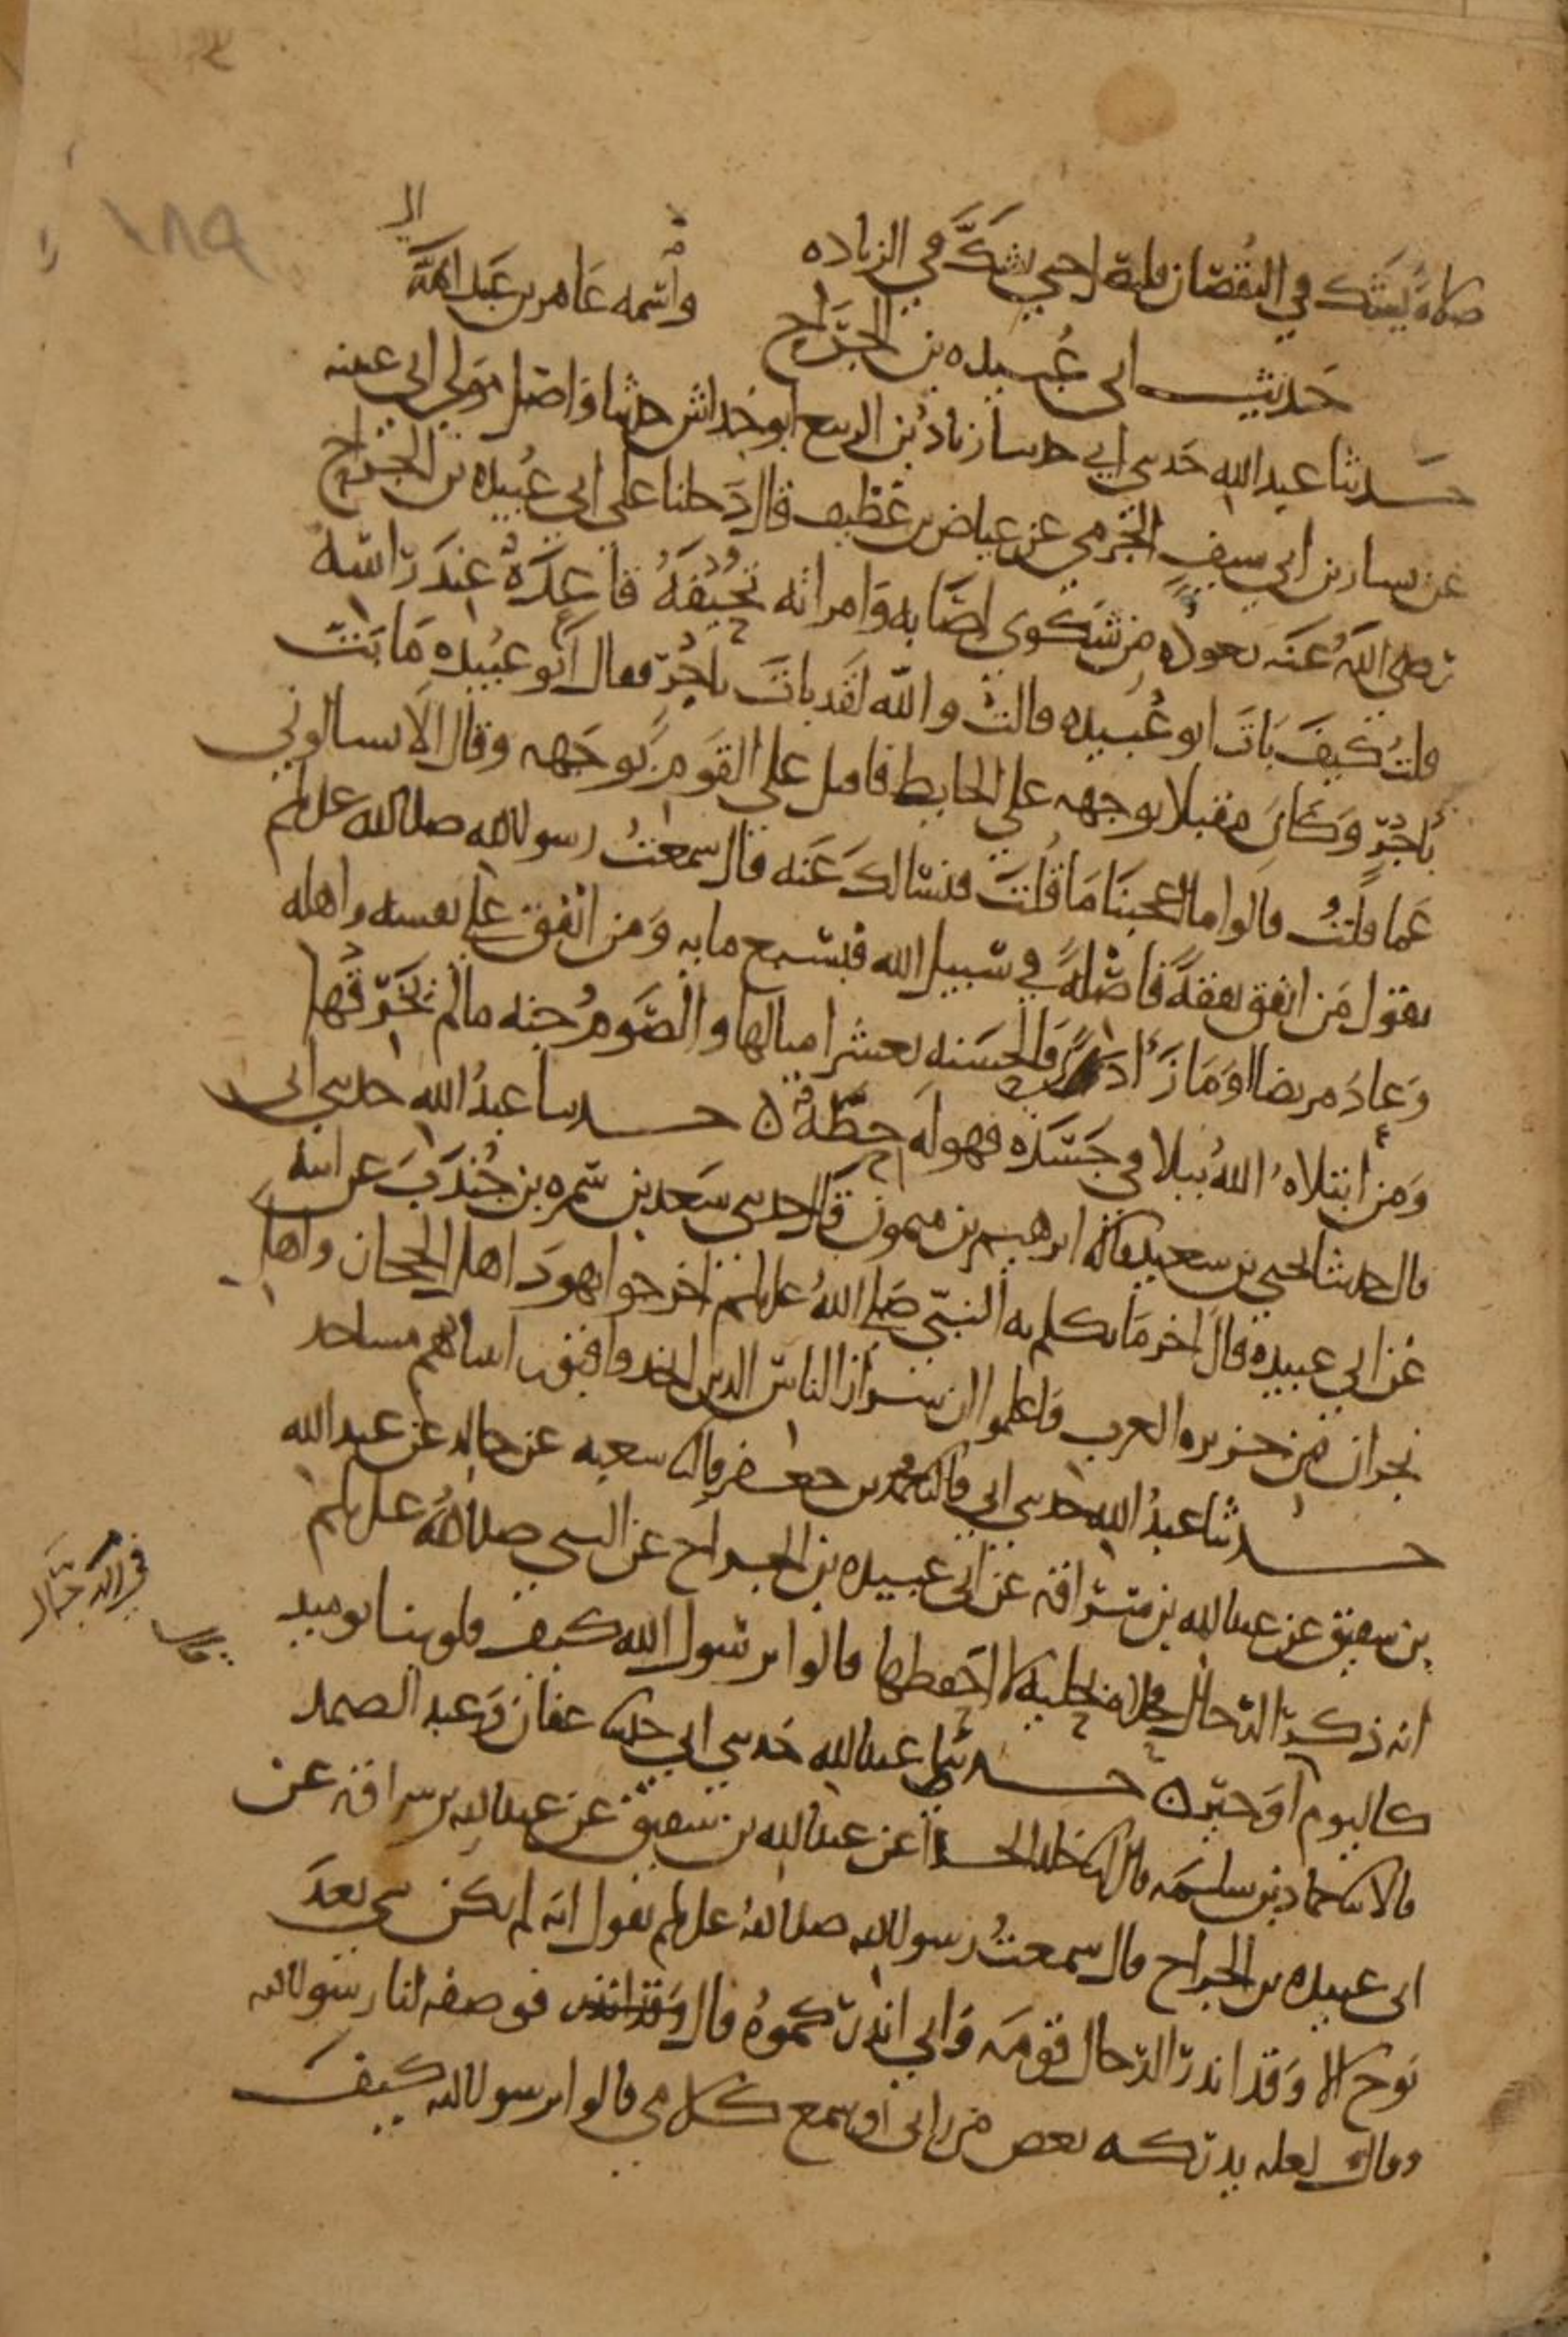 ١٨٩
صلاة يشك في النقصان فليصلي حتى يشك في الزياده
حديث ابي عبيده بن الجراح واسمه عامر بن عبد الله
حدثنا عبد الله حدثني ابي حدثنا زياد بن الربيع ابو خداش حدثنا واصل مولى ابي عيينه
عن بشار بن ابي سيف الجرمي عن عياض بن غطيف قال دخلنا على ابي عبيده بن الجراح
رضي الله عنه نعوده من شكوى اصابه وامراته تحيفة قاعدة عند راسه
قلت كيف بات ابو عبيده قالت والله لقد بات باجر فقال ابو عبيده ما بت
باجر وكان مقبلا بوجهه على الحايط فاقبل على القوم بوجهه وقال الا تسالوني
عما قلت قالوا ما اعجبنا ما قلت فنسالك عنه قال سمعت رسول الله صلى الله عليه وسلم
يقول من انفق نفقة فاضلة في سبيل الله فبسبع مايه ومن انفق على نفسه واهله
وعاد مريضا او ماز اذى فالحسنه بعشر امثالها والصوم جنه ما لم يخرقها
ومن ابتلاه الله ببلا في جسده فهو له حطة حدثنا عبد الله حدثني ابي
قال حدثنا يحيى بن سعيد قال ثنا ابرهيم بن ميمون قال حدثني سعد بن سمره بن جندب عن ابيه
عن ابي عبيده قال اخر ما تكلم به النبي صلى الله عليه وسلم اخرجوا يهود اهل الحجاز واهل
نجران من جزيره العرب واعلموا ان شرار الناس الذين اتخذوا قبور انبيائهم مساجد
حدثنا عبد الله حدثني ابي قال ثنا محمد بن جعفر قال ثنا شعبه عن خالد عن عبد الله
بن شقيق عن عبد الله بن سراقه عن ابي عبيده بن الجراح عن النبي صلى الله عليه وسلم
انه ذكر الدجال فحلاه بحليه لا احفظها قالوا يرسول الله كيف قلوبنا يوميذ
كاليوم او خير حدثنا عبد الله حدثني ابي حدثنا عفان وعبد الصمد
قالا ثنا حماد بن سلمه قال انا خالد الحذا عن عبد الله بن شقيق عن عبد الله بن سراقه عن
ابي عبيده بن الجراح قال سمعت رسول الله صلى الله عليه وسلم يقول انه لم يكن نبي بعد
نوح الا وقد انذر الدجال قومه واني انذركموه قال فوصفه لنا رسول الله
وقال لعله يدركه بعض من راني او سمع كلامي قالوا يرسول الله كيف